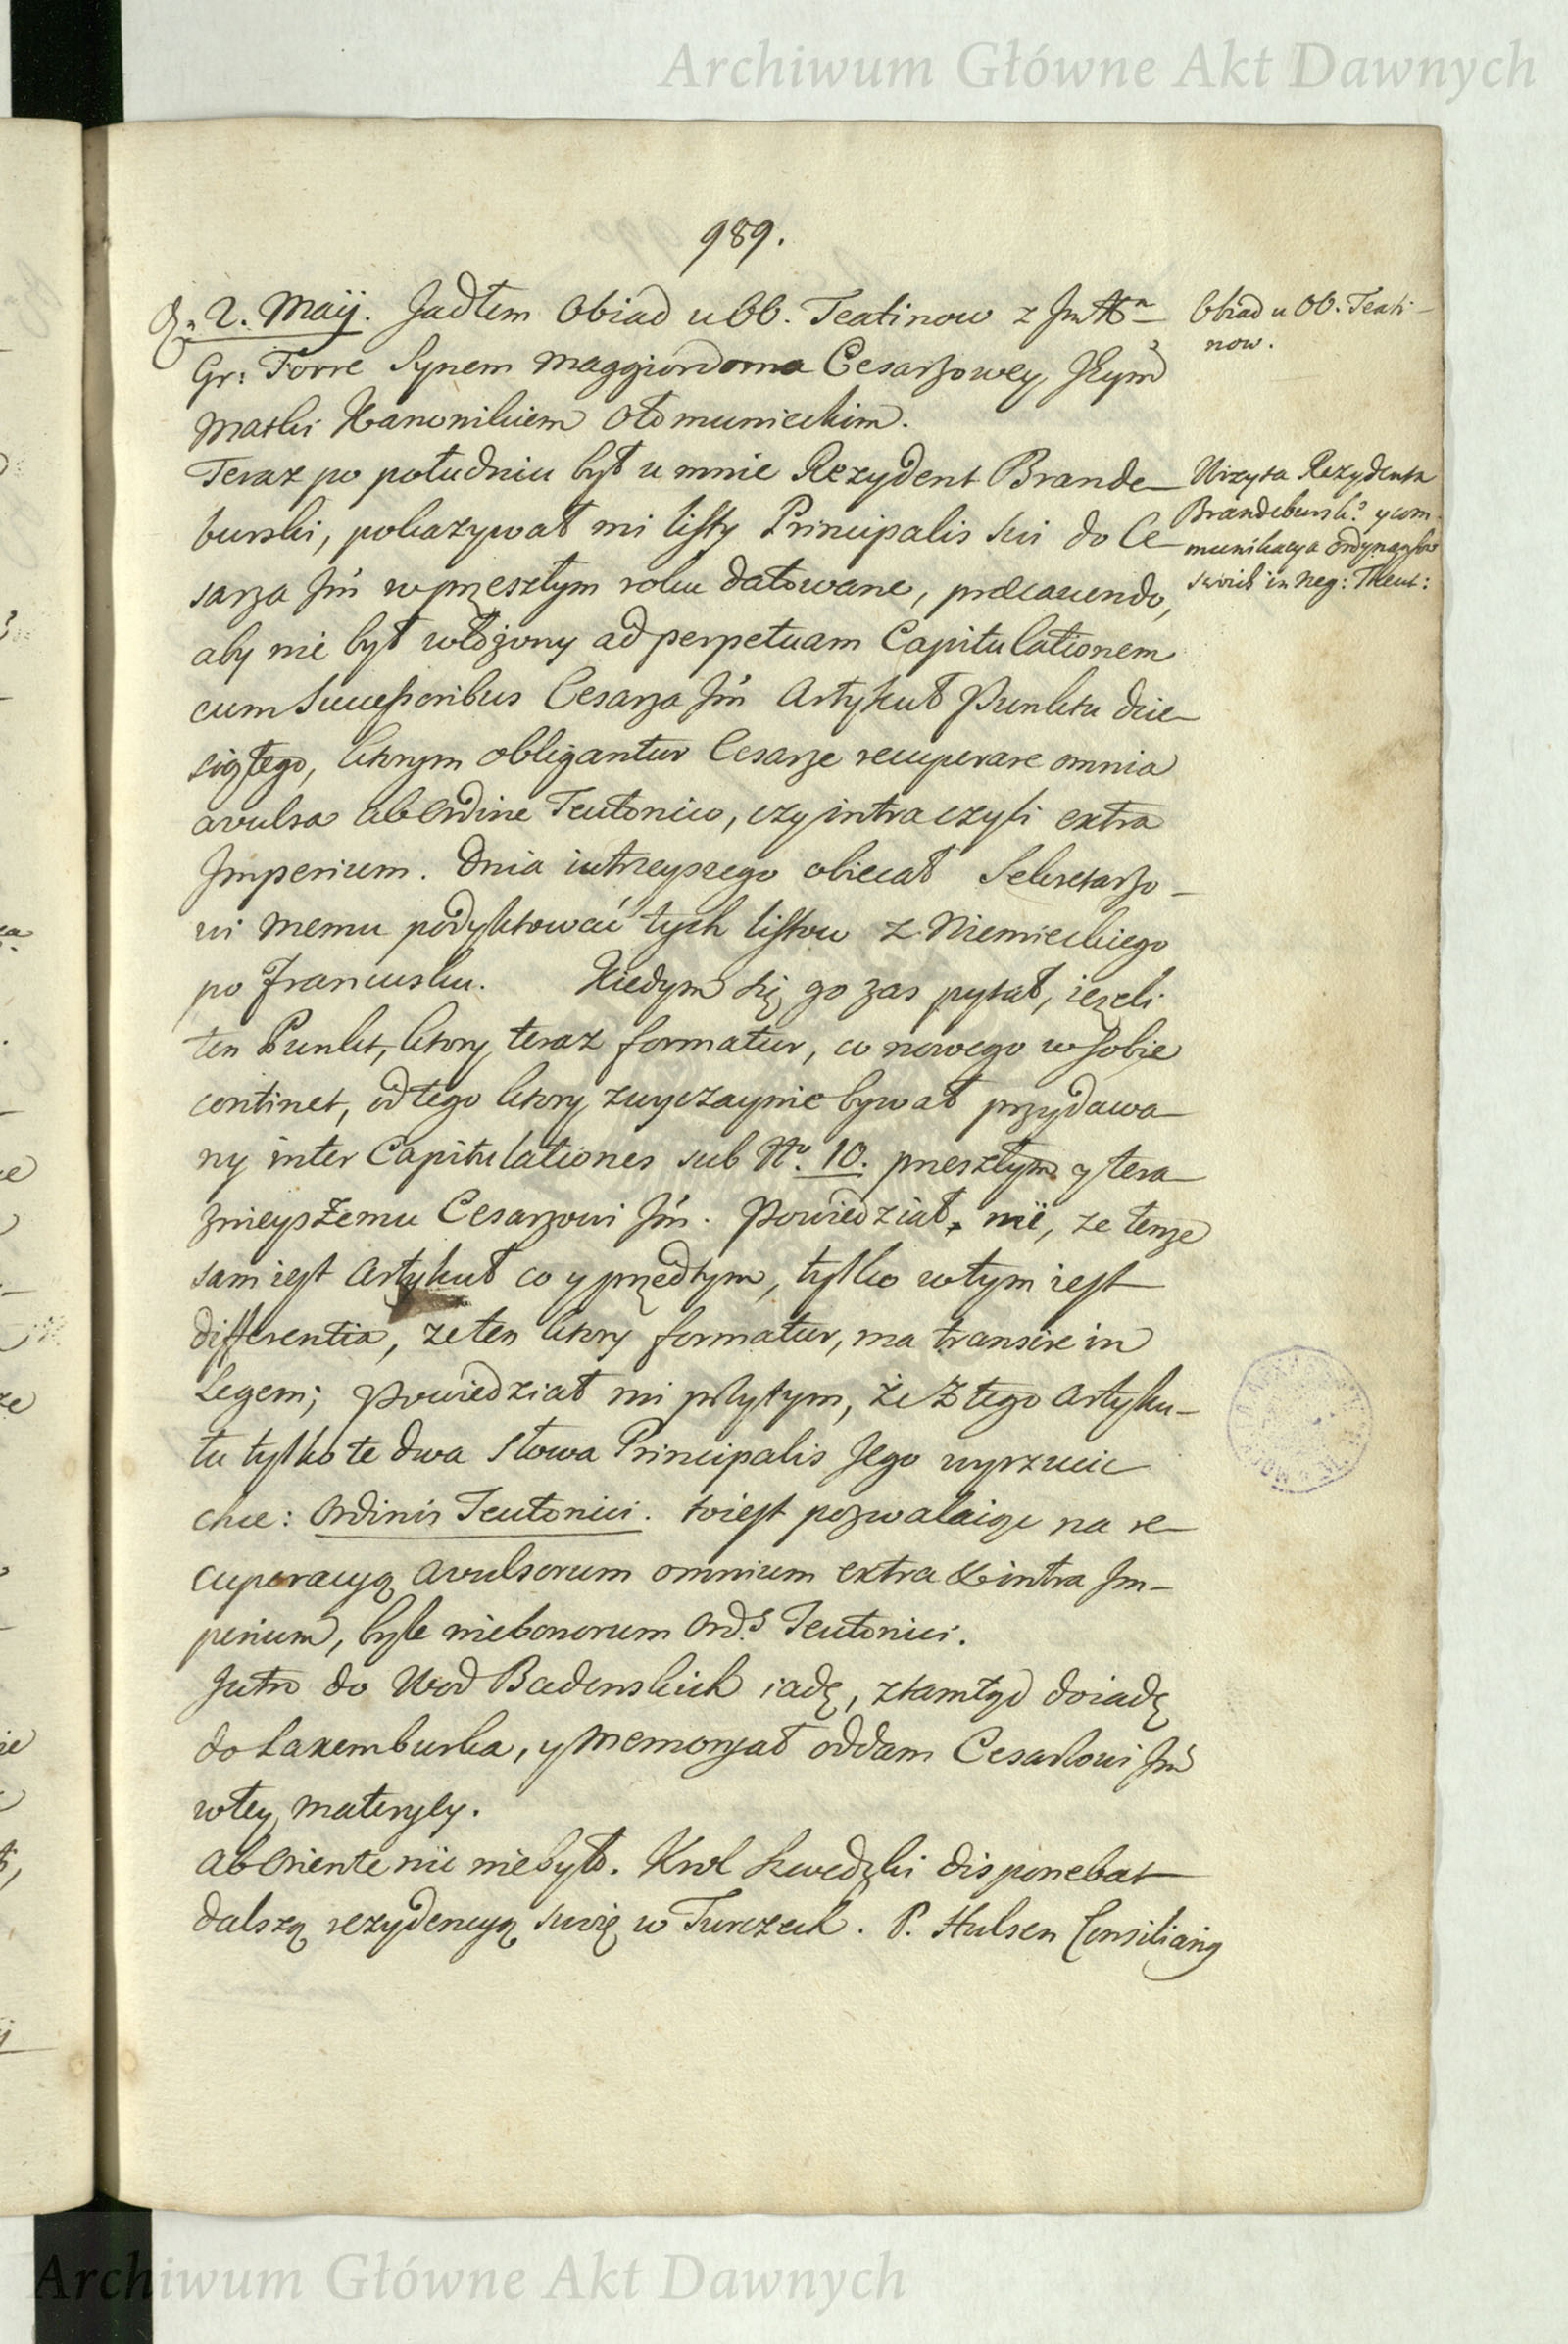 Archiwum Główne Akt Dawnych
989.
2. Maij. Jadłem Obiad u OO. Teatinow z Jm
Obiad u OO. Teati-
now.
Gr: Torre Synem Maggiordoma Cesarzowey,
Matki Kanonikiem Ołomunieckim.
Teraz po południu był u mnie Rezydent Brande-
burski, pokazywał mi listy Principalis sui do Ce-
sarza Jm w przeszłym roku datowane, praecavendo,
Wizyta Rezydenta
Brandeburskº y com-
munikacya
swoich in neg: Theut:
aby nie był włożony ad perpetuam Capitulationem
cum Successoribus Cesarza Jm Artykuł Punktu dzie-
siątego, ktorym obligantur Cesarze recuperare omnia
avulsa ab Ordine Teutonico, czy intra czyli extra
Imperium. Dnia iutrzeyszego obiecał Sekretarzo-
wi memu podyktować tych listow z Niemieckiego
po Francusku. Kiedym się go zas pytał, ieżeli
ten Punkt, ktory teraz formatur, co nowego w sobie
continet, od tego ktory zwyczaynie bywał przydawa-
ny inter Capitulationes sub Nº. 10. przeszłym y tera-
znieyszemu Cesarzowi Jm. Powiedział, nie, ze tenze
sam iest Artykuł co y przedtym, tylko w tym iest
differentia, ze ten ktory formatur, ma transire in
Legem; Powiedział mi przytym, że z tego Artyku-
łu tylko te dwa słowa Principalis Jego wyrzucic
chce: Ordinis Teutonici. to iest pozwalaiąc na re-
cuperacyą avulsorum omnium extra & intra Im-
perium, byle nie bonorum Ord.s Teutonici.
Jutro do Wod Badenskich iadę, ztamtąd doiadę
do Laxemburka, y Memoryał oddam Cesarzowi Jm
w tey materyey.
Ab Oriente nic nie było. Krol Szwedzki disponebat
dalszą rezydencyą swoię w Turczech. P. Hulsen Consiliarig
Archiwum Główne Akt Dawnych